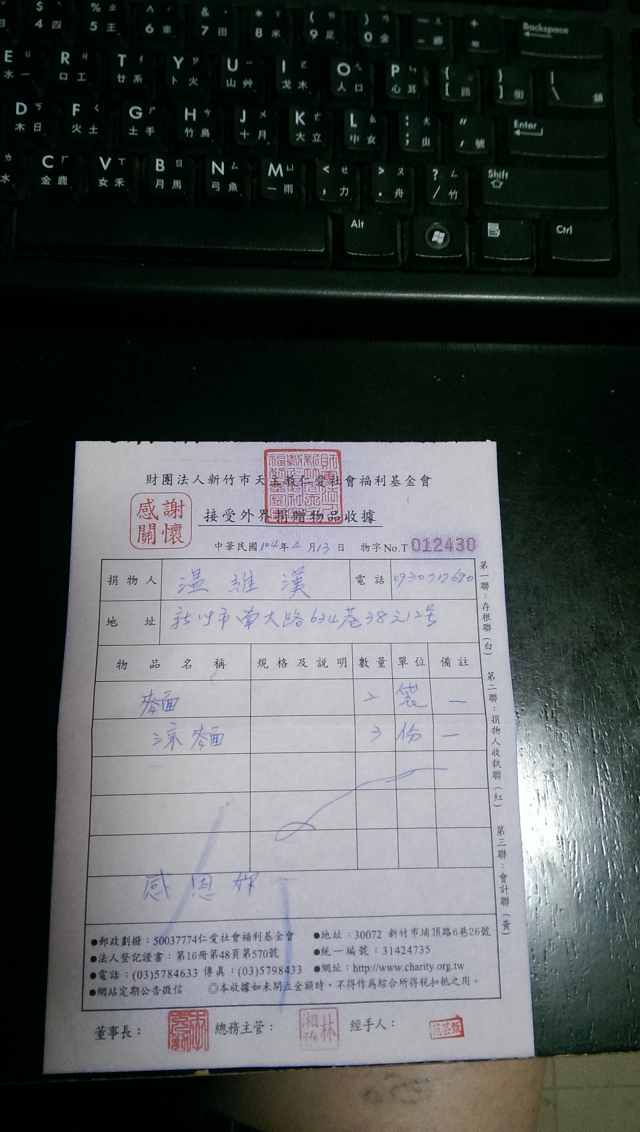 Backspace
E ㄍ 水 一
R ㄐ 口 工
T ㄔ 廿 系
Y ㄗ 卜 火
U 一 山 艸
I ㄛ 戈 木
O ㄟ 人 口
P ㄣ 心 耳
D ㄎ 木 日
F ㄑ 火 土
G ㄕ 土 手
H ㄘ 竹 鳥
J ㄨ 十 月
K ㄜ 大 立
L ㄠ 中 女
Enter
C ㄏ 金 鹿
V ㄒ 女 禾
B ㄖ 月 馬
N ㄙ 弓 魚
M ㄩ 一 雨
Shift
Alt
Ctrl
財團法人新竹市天主教仁愛社會福利基金會
感謝
關懷
接受外界捐贈物品收據
中華民國104年4月13日 物字No.T 012430
捐物人 温維漢 電話
地址 新竹市南大路634巷38之12号
物品名稱 規格及說明 數量 單位 備註
麥面 2 袋 —
涼麥面 3 份 —
感恩
第一聯:存根聯(白) 第二聯:捐物人收執聯(紅) 第三聯:會計聯(黃)
●郵政劃撥:50037774仁愛社會福利基金會 ●地址:30072 新竹市埔頂路6巷26號
●法人登記證書:第16冊第48頁第570號 ●統一編號:31424735
●電話:(03)5784633 傳真:(03)5798433 ●網址:http://www.charity.org.tw
●網站定期公告徵信 ◎本收據如未開立金額時,不得作為綜合所得稅扣抵之用。
董事長: 總務主管: 經手人: